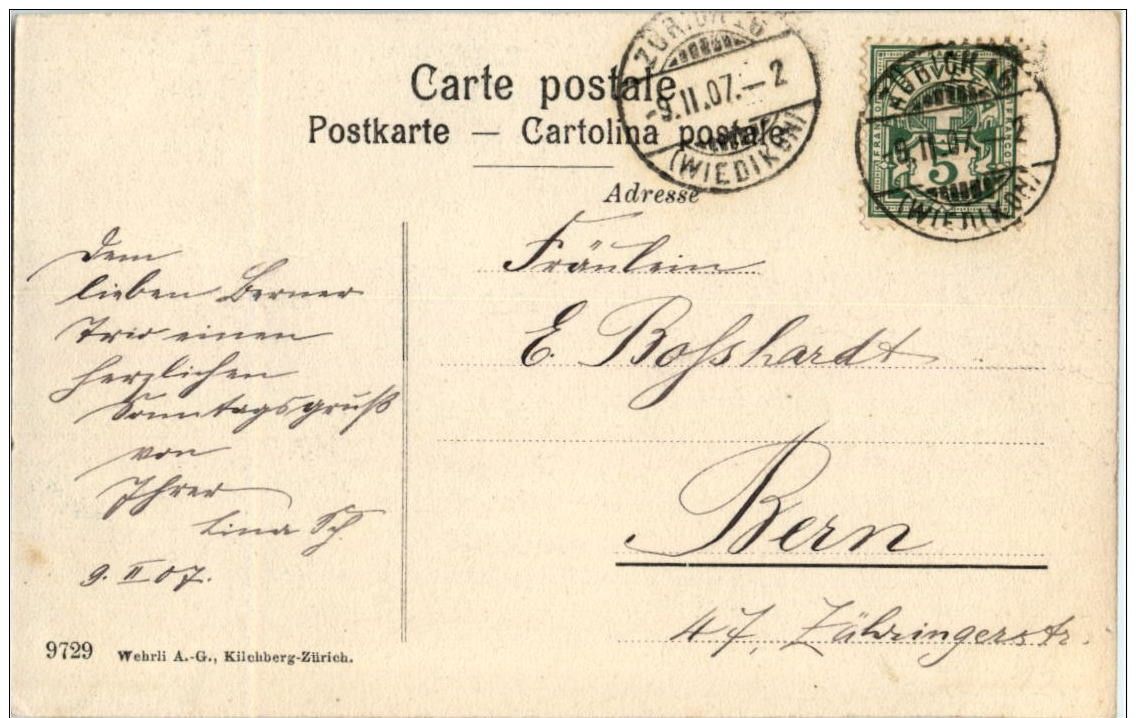 Carte postale
Postkarte — Cartolina postale
Adresse
ZÜRICH 16
-9.II.07.-2
(WIEDIKON)
ZÜRICH 16
-9.II.07.-2
(WIEDIKON)
FRANCO
5
FRANCO
Dem
lieben Berner
Trio einen
herzlichen
Sonntagsgruß
von
Ihrer
Lina Sch.
9. II 07.
Fräulein
E. Boßhardt
Bern
47, Zähringerstr.
9729 Wehrli A.-G., Kilchberg-Zürich.